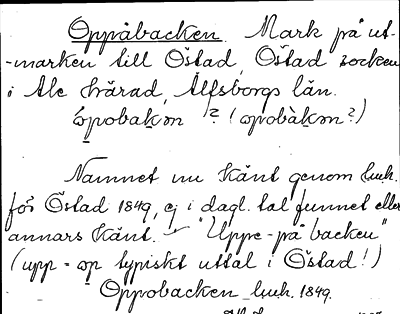 Oppåbacken Mark på ut-
-marken till Östad, Östad socken
i Ale härad, Älfsborgs län.
opobakən ? (opobàkən?)
Namnet nu känt genom huh.
för Östad 1849, ej i dagl. tal funnet eller
annars känt. – "Uppe-på backen"
(upp - op typiskt uttal i Östad!)
Oppobacken huh. 1849.